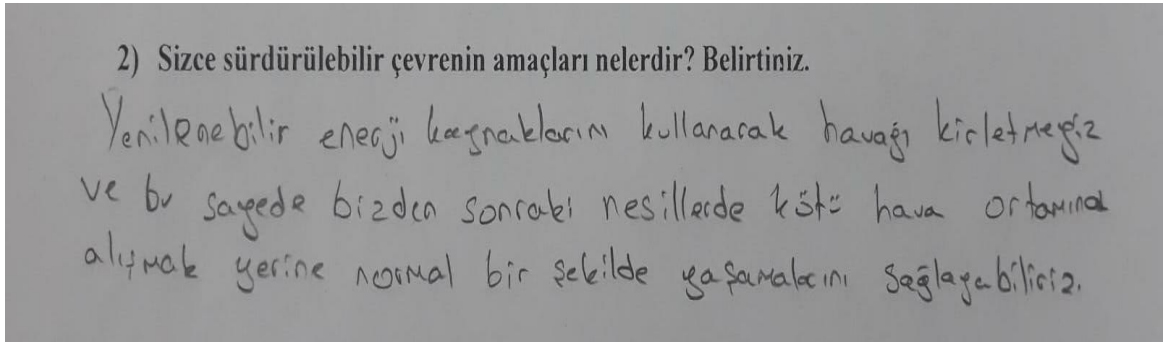 2) Sizce sürdürülebilir çevrenin amaçları nelerdir? Belirtiniz.
Yenilenebilir enerji kaynaklarını kullanarak havayı kirletmeyiz
ve bu sayede bizden sonraki nesillerde kötü hava ortamına
alışmak yerine normal bir şekilde yaşamalarını sağlayabiliriz.